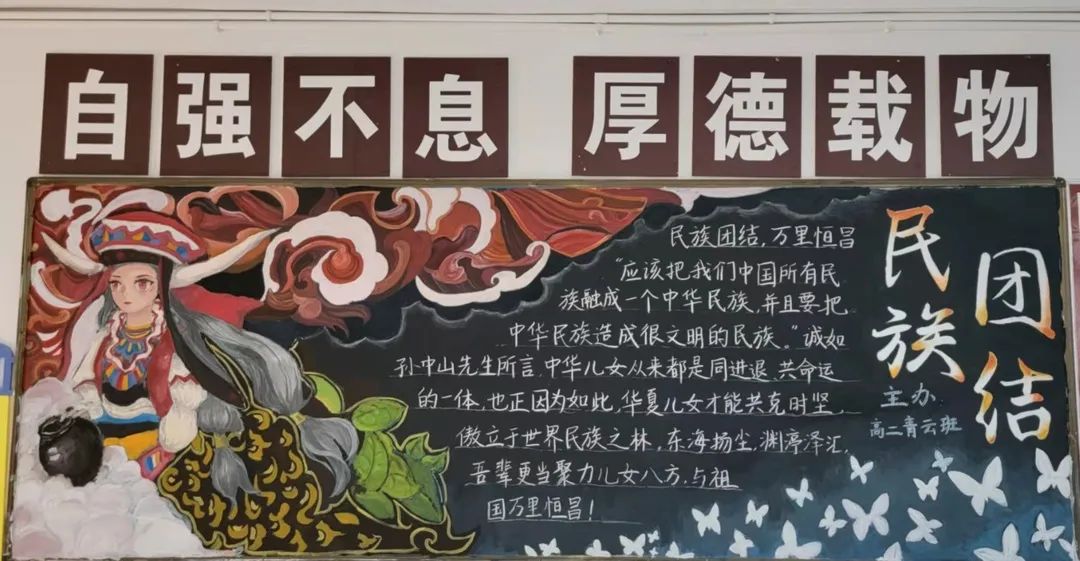 自强不息 厚德载物
民族团结
主办
高二青云班
民族团结，万里恒昌
“应该把我们中国所有民
族融成一个中华民族，并且要把
中华民族造成很文明的民族。”诚如
孙中山先生所言，中华儿女从来都是同进退、共命运
的一体，也正因为如此，华夏儿女才能共克时坚，
傲立于世界民族之林，东海扬尘，渊渟泽汇，
吾辈更当聚力儿女八方，与祖
国万里恒昌！